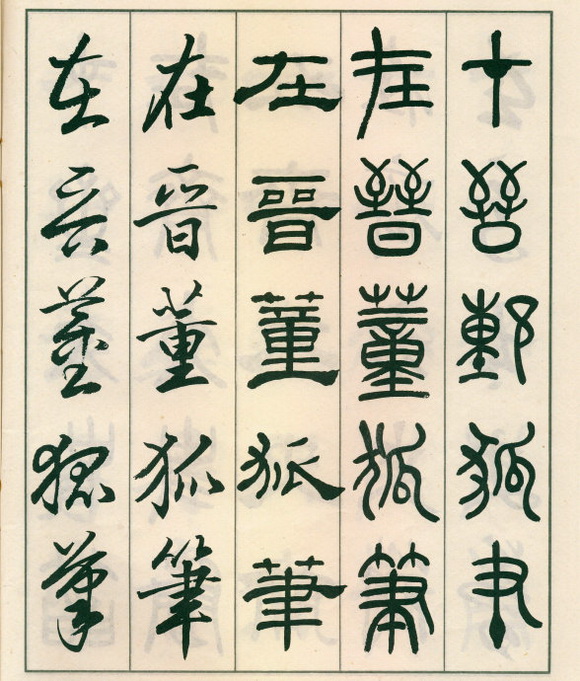 在晉董狐筆
在晉董狐筆
在晉董狐筆
在晉董狐筆
在晉董狐筆